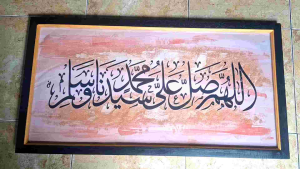 اللهم صل على سيدنا محمد وسلم